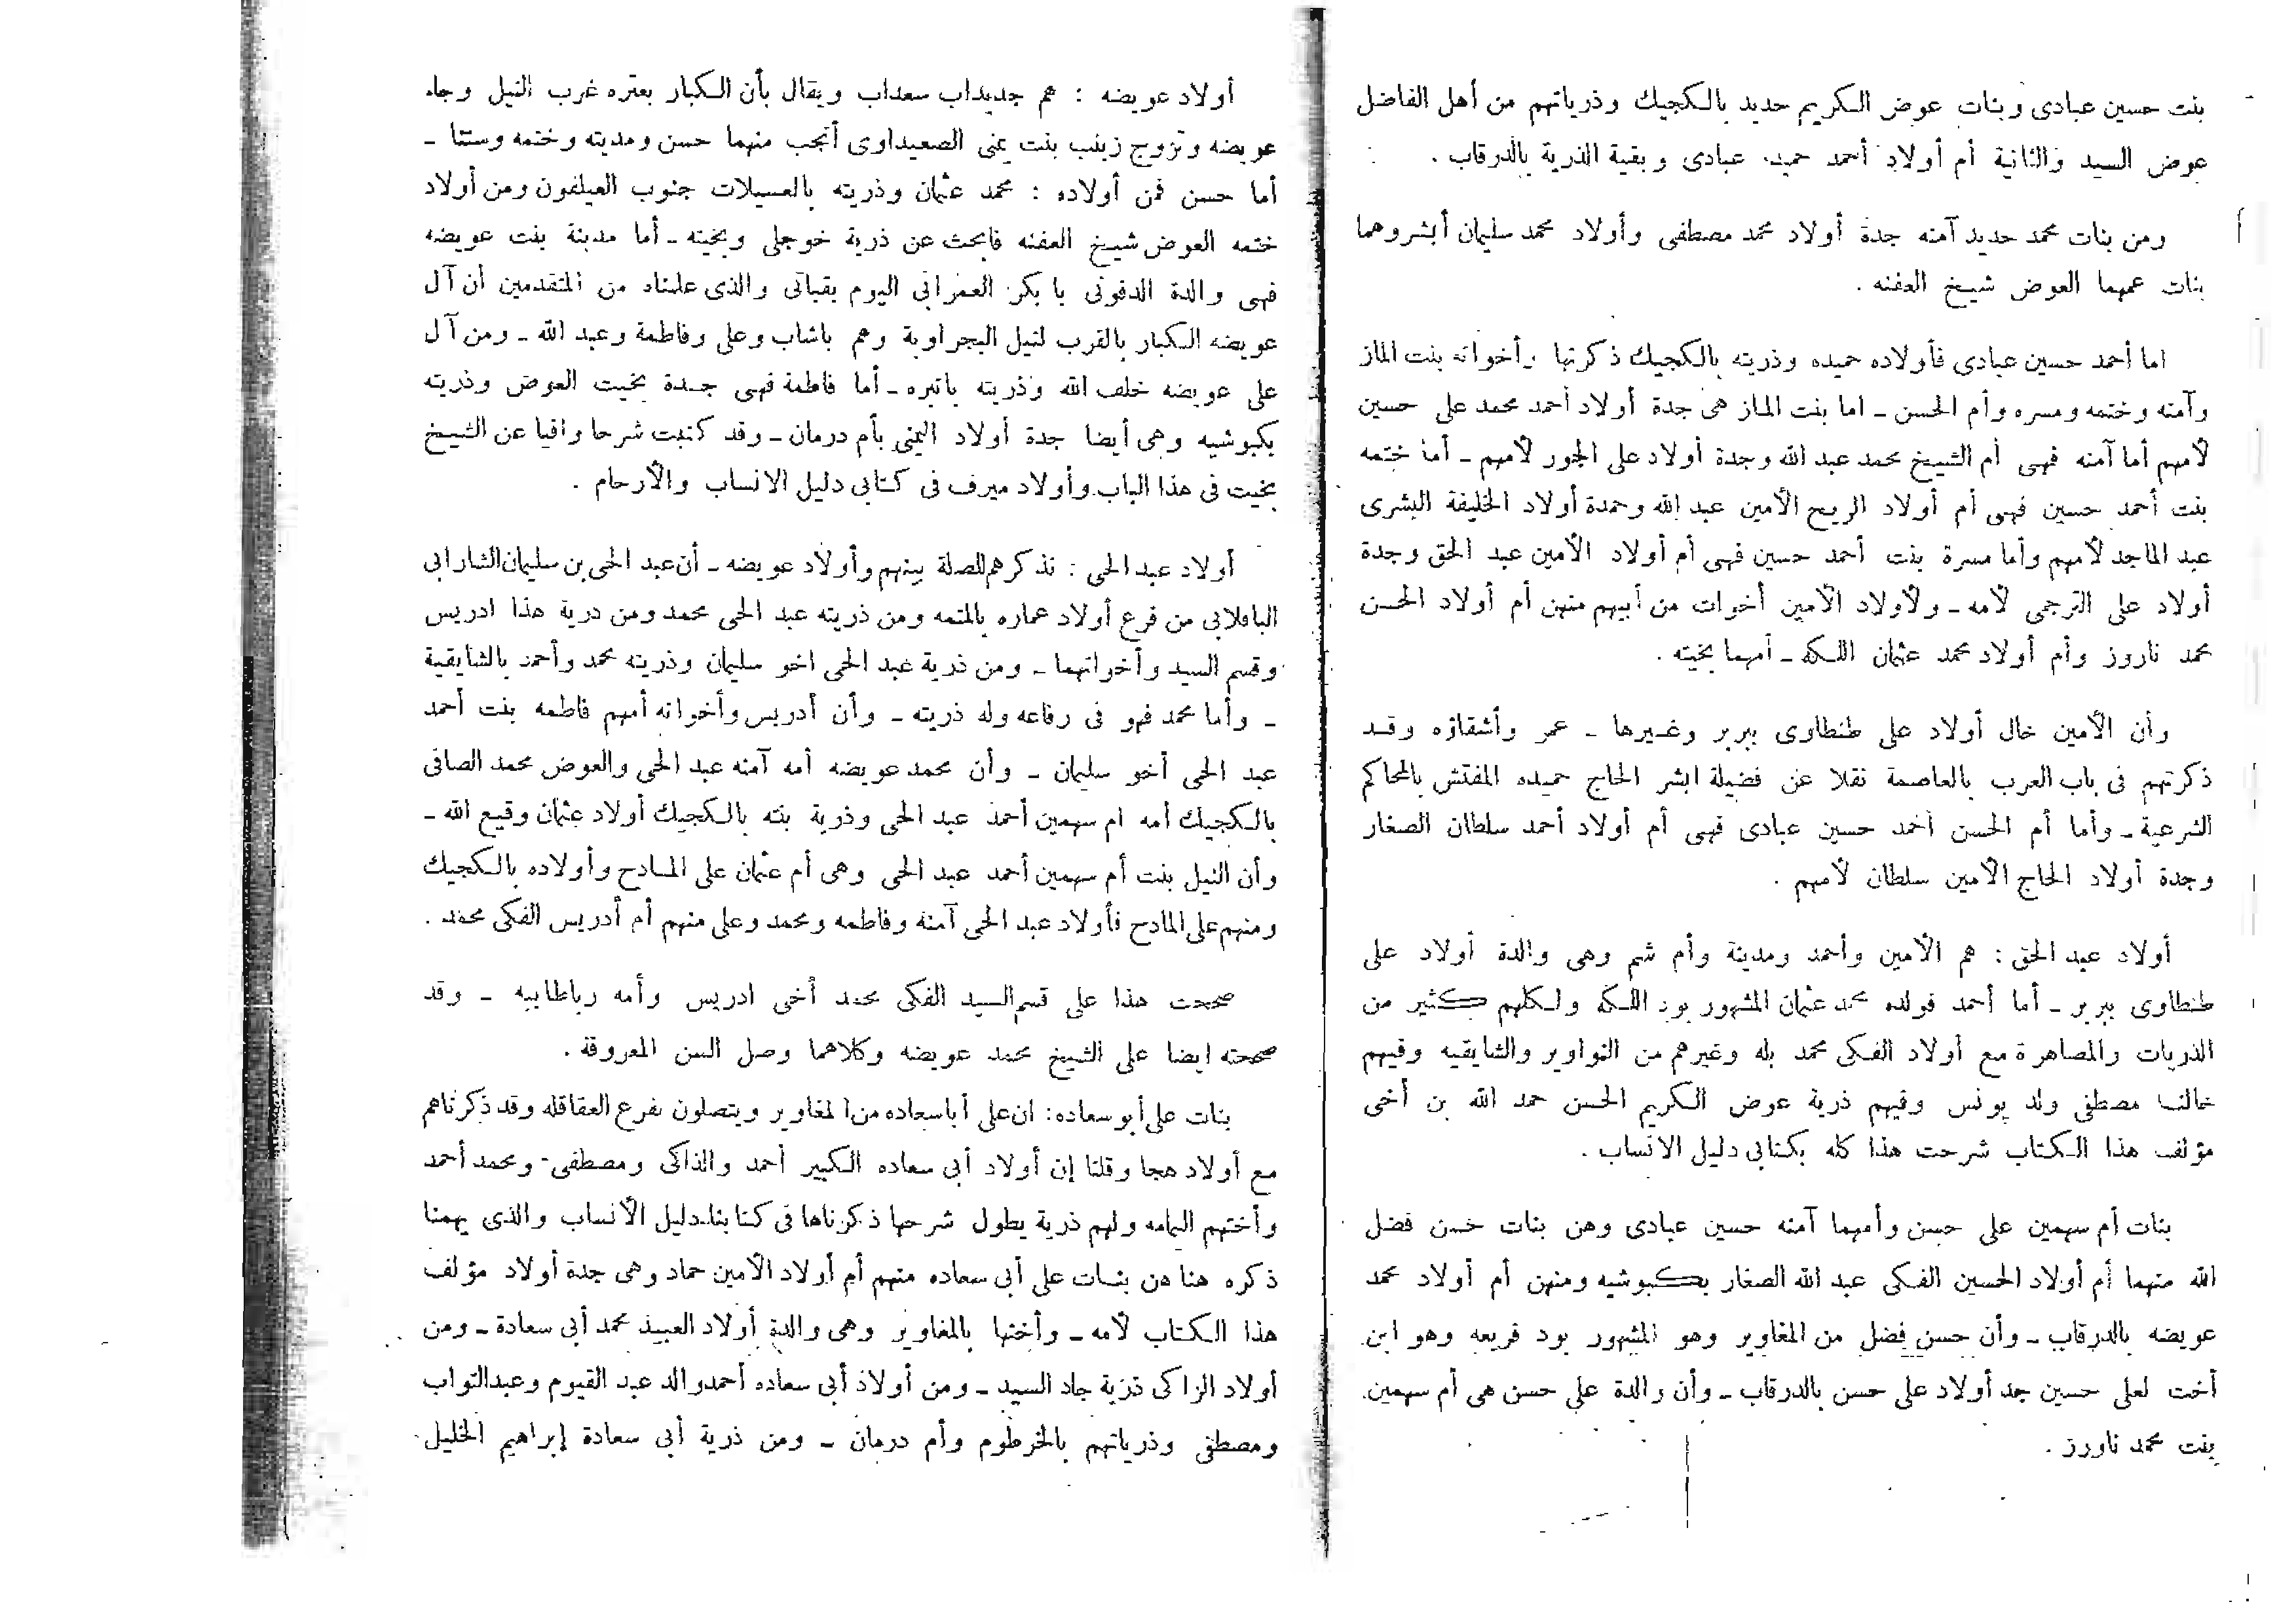 بنت حسين عبادى وبنات عوض الكريم حديد بالكجيك وذرياتهم من أهل الفاضل
عوض السيد والثانية أم أولاد أحمد حميد عبادى وبقية الذرية بالدرقاب .
ومن بنات محمد حديد آمنه جدة أولاد محمد مصطفى وأولاد محمد سليمان أبشر وهما
بنات عمهما العوض شيخ العفنه .
اما أحمد حسين عبادى فأولاده حميده وذريته بالكجيك ذكرتها وأخواته بنت الماز
وآمنه وختمه ومسره وأم الحسن ـ اما بنت الماز هى جدة أولاد أحمد محمد على حسين
لأمهم أما آمنه فهى أم الشيخ محمد عبد الله وجدة أولاد على الجور لأمهم ـ أما ختمه
بنت أحمد حسين فهى أم أولاد الريح الأمين عبد الله وحمدة أولاد الخليفة البشرى
عبد الماجد لأمهم وأما مسرة بنت أحمد حسين فهى أم أولاد الأمين عبد الحق وجدة
أولاد على الترجمى لأمه ـ ولأولاد الأمين أخوات من أبيهم منهن أم أولاد الحسن
محمد ناروز وأم أولاد محمد عثمان اللكه ـ أمهما بخيته .
وأن الأمين خال أولاد على طنطاوى ببربر وغيرها ـ عمر وأشقاؤه وقد
ذكرتهم فى باب العرب بالعاصمة نقلا عن فضيلة ابشر الحاج حميده المفتش بالمحاكم
الشرعية ـ وأما أم الحسن أحمد حسين عبادى فهى أم أولاد أحمد سلطان الصغار
وجدة أولاد الحاج الأمين سلطان لأمهم .
أولاد عبد الحق : هم الأمين وأحمد ومدينة وأم شم وهى والدة أولاد على
طنطاوى ببربر ـ أما أحمد فولده محمد عثمان المشهور بود اللكه ولكلهم كثير من
الذريات والمصاهرة مع أولاد الفكى محمد بله وغيرهم من النواوير والشايقيه وفيهم
خالنا مصطفى ولد يونس وفيهم ذرية عوض الكريم الحسن حمد الله بن أخى
مؤلف هذا الكتاب شرحت هذا كله بكتابى دليل الانساب .
بنات أم سهمين على حسن وأمهما آمنه حسين عبادى وهن بنات حسن فضل
الله منهما أم أولاد الحسين الفكى عبد الله الصغار بكبوشيه ومنهن أم أولاد محمد
عويضه بالدرقاب ـ وأن حسن فضل من المغاوير وهو المشهور بود قريعه وهو ابن
أخت لعلى حسين جد أولاد على حسن بالدرقاب ـ وأن والدة على حسن هى أم سهمين
بنت محمد ناورز .
أولاد عويضه : هم جديداب سعداب ويقال بأن الكبار بعتره غرب النيل وجاء
عويضه وتزوج زينب بنت يمنى الصعيداوى أنجب منهما حسن ومدينه وختمه وستنا ـ
أما حسن فمن أولاده : محمد عثمان وذريته بالعسيلات جنوب العيلفون ومن أولاد
ختمه العوض شيخ العفنه فابحث عن ذرية خوجلى وبخيته ـ أما مدينة بنت عويضه
فهى والدة الدقونى بابكر العمرابى اليوم بقباتى والذى علمناه من المتقدمين أن آل
عويضه الكبار بالقرب لنيل البجراوية وهم باشاب وعلى وفاطمة وعبد الله ـ ومن آل
على عويضه خلف الله وذريته باتبره ـ أما فاطمة فهى جدة بخيت العوض وذريته
بكبوشيه وهى أيضا جدة أولاد اليمنى بأم درمان ـ وقد كتبت شرحا وافيا عن الشيخ
بخيت فى هذا الباب وأولاد ميرف فى كتابى دليل الانساب والأرحام .
أولاد عبد الحى : نذكرهم للصلة بينهم وأولاد عويضه ـ أن عبد الحى بن سليمان الشارابى
البافلابى من فرع أولاد عماره بالمتمه ومن ذريته عبد الحى محمد ومن درية هذا ادريس
وقسم السيد وأخواتهما ـ ومن ذرية عبد الحى اخو سليمان وذريته محمد وأحمد بالشايقية
ـ وأما محمد فهو فى رفاعه وله ذريته ـ وأن أدريس وأخواته أمهم فاطمه بنت أحمد
عبد الحى أخو سليمان ـ وأن محمد عويضه أمه آمنه عبد الحى والعوض محمد الصافى
بالكجيك أمه ام سهمين أحمد عبد الحى وذرية بنته بالكجيك أولاد عثمان وقيع الله ـ
وأن النيل بنت أم سهمين أحمد عبد الحى وهى أم عثمان على المادح وأولاده بالكجيك
ومنهم على المادح فأولاد عبد الحى آمنة وفاطمه ومحمد وعلى منهم أم أدريس الفكى محمد .
صححت هذا على قسم السيد الفكى محمد أخى ادريس وأمه رباطابيه ـ وقد
صححته ايضا على الشيخ محمد عويضه وكلاهما وصل السن المعروفة .
بنات على أبو سعاده : ان على أبا سعاده من المغاوير ويتصلون بفرع العقاقله وقد ذكرناهم
مع أولاد هجا وقلنا إن أولاد أبى سعاده الكبير أحمد والذاكى ومصطفى ومحمد أحمد
وأختهم اليمامه ولهم ذرية يطول شرحها ذكرناها فى كتابنا دليل الأنساب والذى يهمنا
ذكره هنا هن بنات على أبى سعاده منهم أم أولاد الأمين حماد وهى جدة أولاد مؤلف
هذا الكتاب لأمه ـ وأختها بالمغاوير وهى والدة أولاد العبيد محمد أبى سعادة ـ ومن
أولاد الزاكى ذرية جاد السيد ـ ومن أولاد أبى سعاده أحمد والد عبد القيوم وعبد التواب
ومصطفى وذرياتهم بالخرطوم وأم درمان ـ ومن ذرية أبى سعادة إبراهيم الخليل